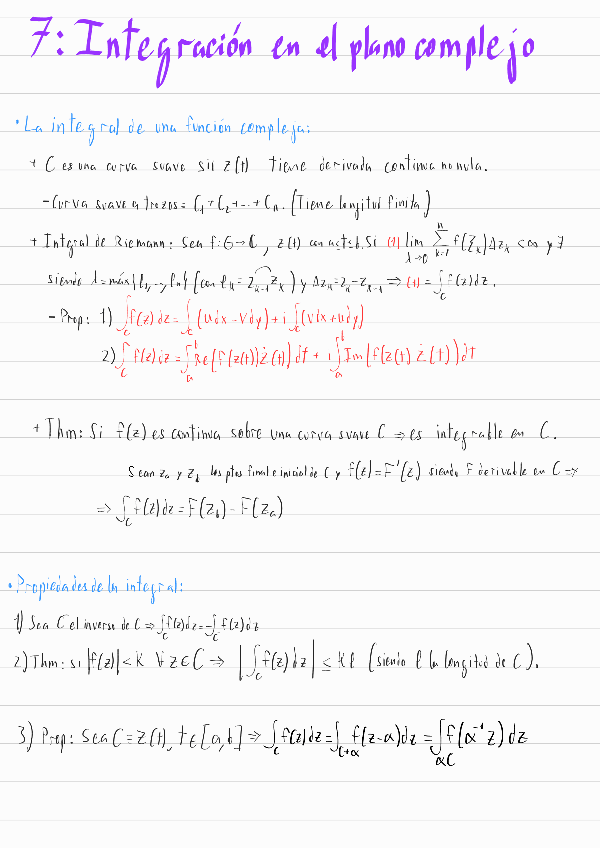 7: Integración en el plano complejo
• La integral de una función compleja:
+ C es una curva suave sii z(t) tiene derivada continua no nula.
- Curva suave a trozos = C₁ + C₂ + ... + Cₙ. (Tiene longitud finita)
+ Integral de Riemann: Sea f: G → ℂ, z(t) con a≤t≤b. Si (1) lim_{λ→0} ∑_{k=1}^{n} f(ξₖ)Δzₖ < ∞ y ∃
siendo λ = máx{l₁, ..., lₙ} (con lₖ = z_{k-1}zₖ) y Δzₖ = zₖ - z_{k-1} ⇒ (1) = ∫_C f(z)dz.
- Prop: 1) ∫_C f(z)dz = ∫_C (udx - vdy) + i ∫_C (vdx + udy)
2) ∫_C f(z)dz = ∫_a^b Re(f(z(t)) ż(t)) dt + i ∫_a^b Im(f(z(t) ż(t)) dt
+ Thm: Si f(z) es continua sobre una curva suave C ⇒ es integrable en C.
Sean zₐ y z_b los ptos final e inicial de C y f(z) = F'(z) siendo F derivable en C ⇒
⇒ ∫_C f(z)dz = F(z_b) - F(zₐ)
• Propiedades de la integral:
1) Sea C⁻ el inverso de C ⇒ ∫_C f(z)dz = -∫_{C⁻} f(z)dz
2) Thm: si |f(z)| < K ∀z ∈ C ⇒ |∫_C f(z)dz| ≤ Kl (siendo l la longitud de C).
3) Prop: Sea C ≡ z(t), t ∈ [a,b] ⇒ ∫_C f(z)dz = ∫_{C+α} f(z-α)dz = ∫_{αC} f(α⁻¹z)dz